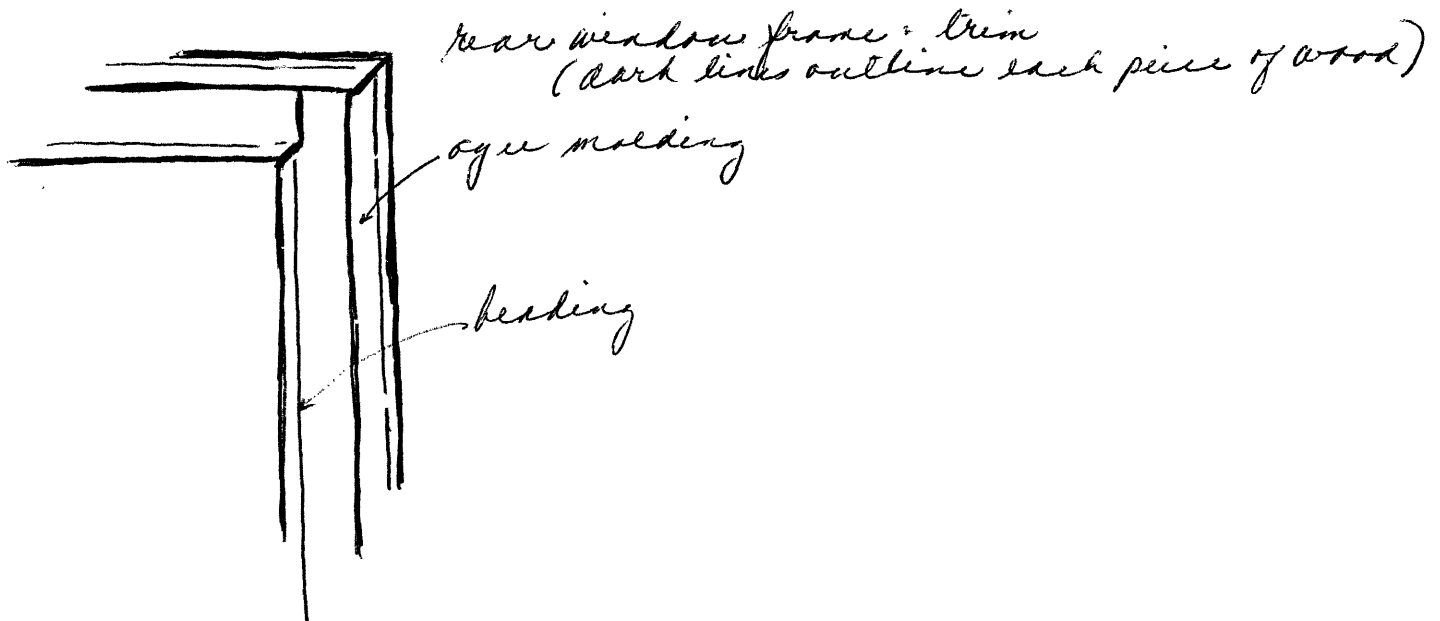 rear window frame & trim
(dark lines outline each piece of wood)
ogee molding
beading